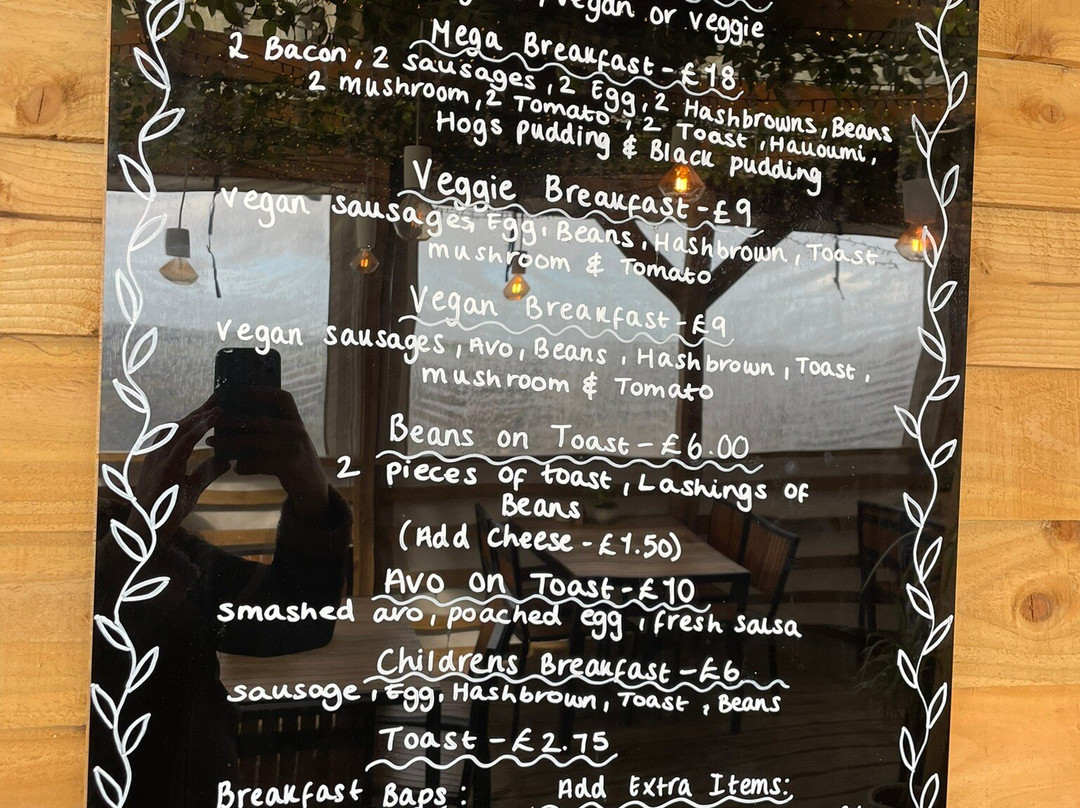 , vegan or veggie
Mega Breakfast - £18
2 Bacon, 2 sausages, 2 Egg, 2 Hashbrowns, Beans
2 mushroom, 2 Tomato, 2 Toast, Halloumi,
Hogs pudding & Black pudding
Veggie Breakfast - £9
vegan sausages, Egg, Beans, Hashbrown, Toast
mushroom & Tomato
Vegan Breakfast - £9
vegan sausages, Avo, Beans, Hashbrown, Toast,
mushroom & Tomato
Beans on Toast - £6.00
2 pieces of toast, Lashings of
Beans
(Add cheese - £1.50)
Avo on Toast - £10
smashed avo, poached egg, fresh salsa
Childrens Breakfast - £6
sausage, Egg, Hashbrown, Toast, Beans
Toast - £2.75
Breakfast Baps:
Add Extra Items: